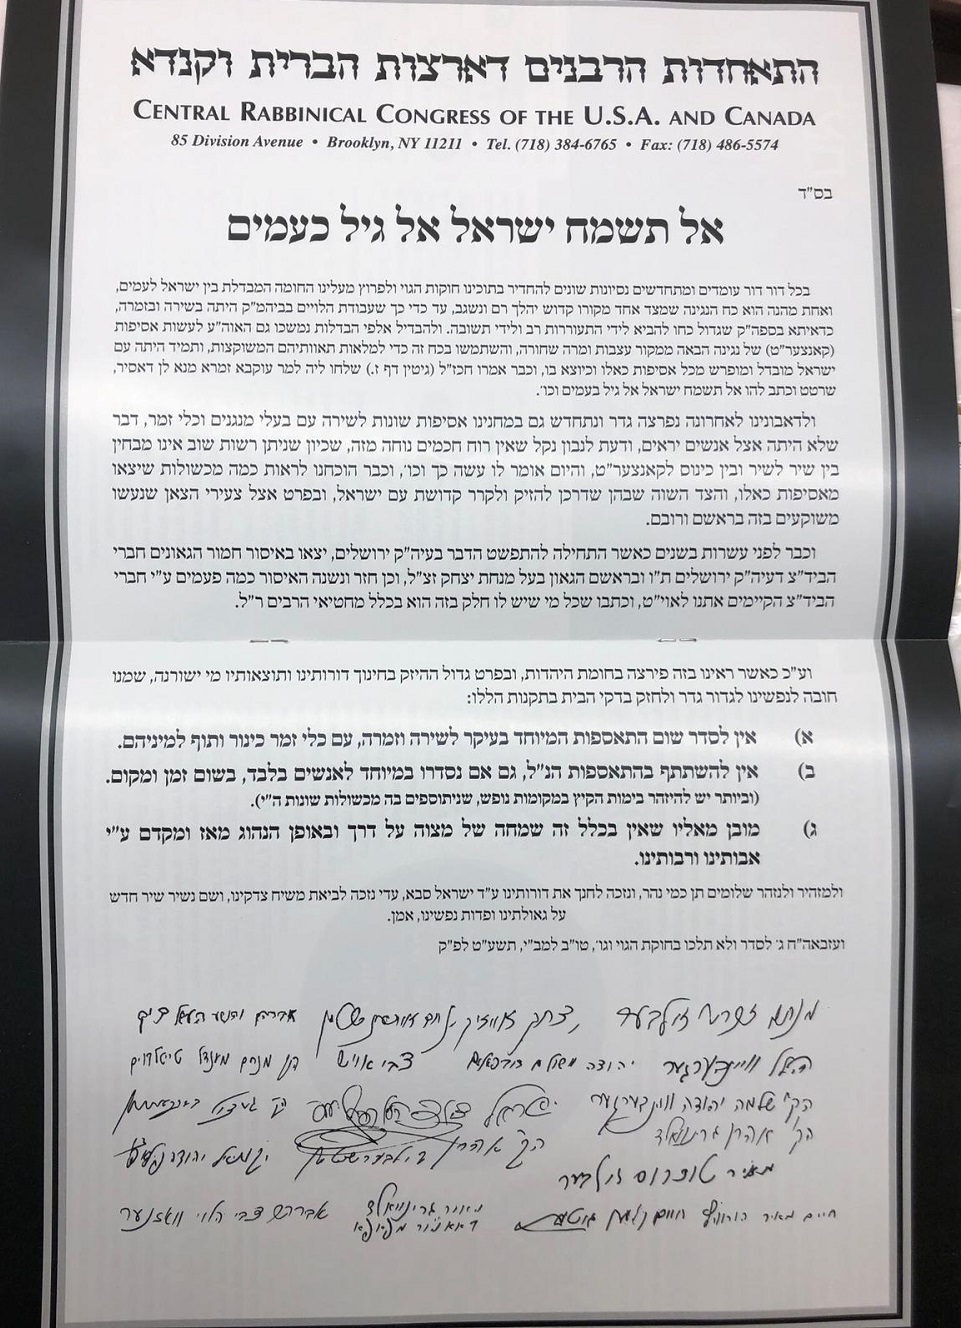 התאחדות הרבנים דארצות הברית וקנדא
CENTRAL RABBINICAL CONGRESS OF THE U.S.A. AND CANADA
85 Division Avenue • Brooklyn, NY 11211 • Tel. (718) 384-6765 • Fax: (718) 486-5574
בס"ד
אל תשמח ישראל אל גיל כעמים
בכל דור דור עומדים ומתחדשים נסיונות שונים להחדיר בתוכינו חוקות הגוי ולפרוץ מעלינו החומה המבדלת בין ישראל לעמים,
ואחת מהנה הוא כח הנגינה שמצד אחד מקורו קדוש יהלך רם ונשגב, עד כדי כך שעבודת הלויים בביהמ"ק היתה בשירה ובזמרה,
כדאיתא בספה"ק שגדול כחו להביא לידי התעוררות רב ולידי תשובה. ולהבדיל אלפי הבדלות נמשכו גם האוה"ע לעשות אסיפות
(קאנצער"ט) של נגינה הבאה ממקור עצבות ומרה שחורה, והשתמשו בכח זה כדי למלאות תאוותיהם המשוקצות, ותמיד היתה עם
ישראל מובדל ומופרש מכל אסיפות כאלו וכיוצא בו, וכבר אמרו חכז"ל (גיטין דף ז.) שלחו ליה למר עוקבא זמרא מנא לן דאסיר,
שרטט וכתב להו אל תשמח ישראל אל גיל בעמים וכו'.
ולדאבונינו לאחרונה נפרצה גדר ונתחדש גם במחנינו אסיפות שונות לשירה עם בעלי מנגנים וכלי זמר, דבר
שלא היתה אצל אנשים יראים, ודעת לנבון נקל שאין רוח חכמים נוחה מזה, שכיון שניתן רשות שוב אינו מבחין
בין שיר לשיר ובין כינוס לקאנצער"ט, והיום אומר לו עשה כך וכו', וכבר הוכחנו לראות כמה מכשולות שיצאו
מאסיפות כאלו, והצד השוה שבהן שדרכן להזיק ולקרר קדושת עם ישראל, ובפרט אצל צעירי הצאן שנעשו
משוקעים בזה בראשם ורובם.
וכבר לפני עשרות בשנים כאשר התחילה להתפשט הדבר בעיה"ק ירושלים, יצאו באיסור חמור הגאונים חברי
הביד"צ דעיה"ק ירושלים ת"ו ובראשם הגאון בעל מנחת יצחק זצ"ל, וכן חזר ונשנה האיסור כמה פעמים ע"י חברי
הביד"צ הקיימים אתנו לאוי"ט, וכתבו שכל מי שיש לו חלק בזה הוא בכלל מחטיאי הרבים ר"ל.
וע"כ כאשר ראינו בזה פירצה בחומת היהדות, ובפרט גדול ההיזק בחינוך דורותינו ותוצאותיו מי ישורנה, שמנו
חובה לנפשינו לגדור גדר ולחזק בדקי הבית בתקנות הללו:
א) אין לסדר שום התאספות המיוחד בעיקר לשירה וזמרה, עם כלי זמר כינור ותוף למיניהם.
ב) אין להשתתף בהתאספות הנ"ל, גם אם נסדרו במיוחד לאנשים בלבד, בשום זמן ומקום.
(וביותר יש להיזהר בימות הקיץ במקומות נופש, שניתוספים בה מכשולות שונות ה"י).
ג) מובן מאליו שאין בכלל זה שמחה של מצוה על דרך ובאופן הנהוג מאז ומקדם ע"י
אבותינו ורבותינו.
ולמזהיר ולנזהר שלומים תן כמי נהר, ונזכה לחנך את דורותינו ע"ד ישראל סבא, עדי נזכה לביאת משיח צדקינו, ושם נשיר שיר חדש
על גאולתינו ופדות נפשינו, אמן.
ועזבאה"ח ג' לסדר ולא תלכו בחוקת הגוי וגו', טו"ב למב"י, תשע"ט לפ"ק
יהודה
צבי
הק' מנחם מענדל
הק' שלמה יהודה וויינבערגער
ישראל
הק' אהרן גרינוואלד
הק' אהרן
יקותיאל יהודה
מאיר
חיים מאיר הורוויץ
מאיר גרינוואלד
אברהם צבי הלוי וואזנער